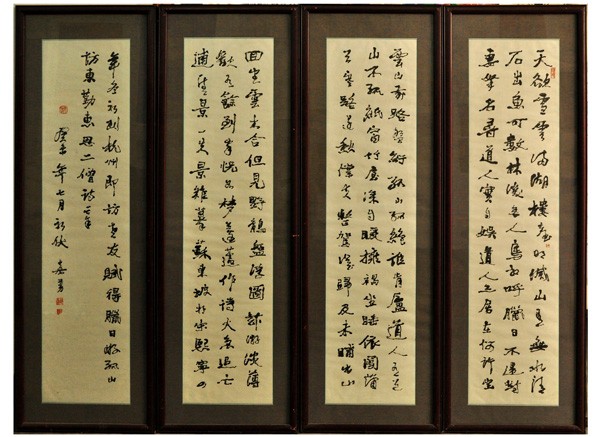 天欲雪雲滿湖樓臺明滅山有無水清
石出魚可數林深無人鳥相呼臘日不歸對
妻孥名尋道人實自娛道人之居在何許寶
雲山前路盤紆孤山孤絕誰肯廬道人有道
山不孤紙窗竹屋深自暖擁褐坐睡依團蒲
天寒路遠愁僕夫整駕催歸及未晡出山
回望雲木合但見野鶻盤浮圖茲遊淡薄
歡有餘到家怳如夢蘧蘧作詩火急追亡
逋清景一失景難摹蘇東坡於宋熙寧四
年冬初到杭州即訪友賦得臘日遊孤山
訪惠勤惠思二僧詩
年七月初秋